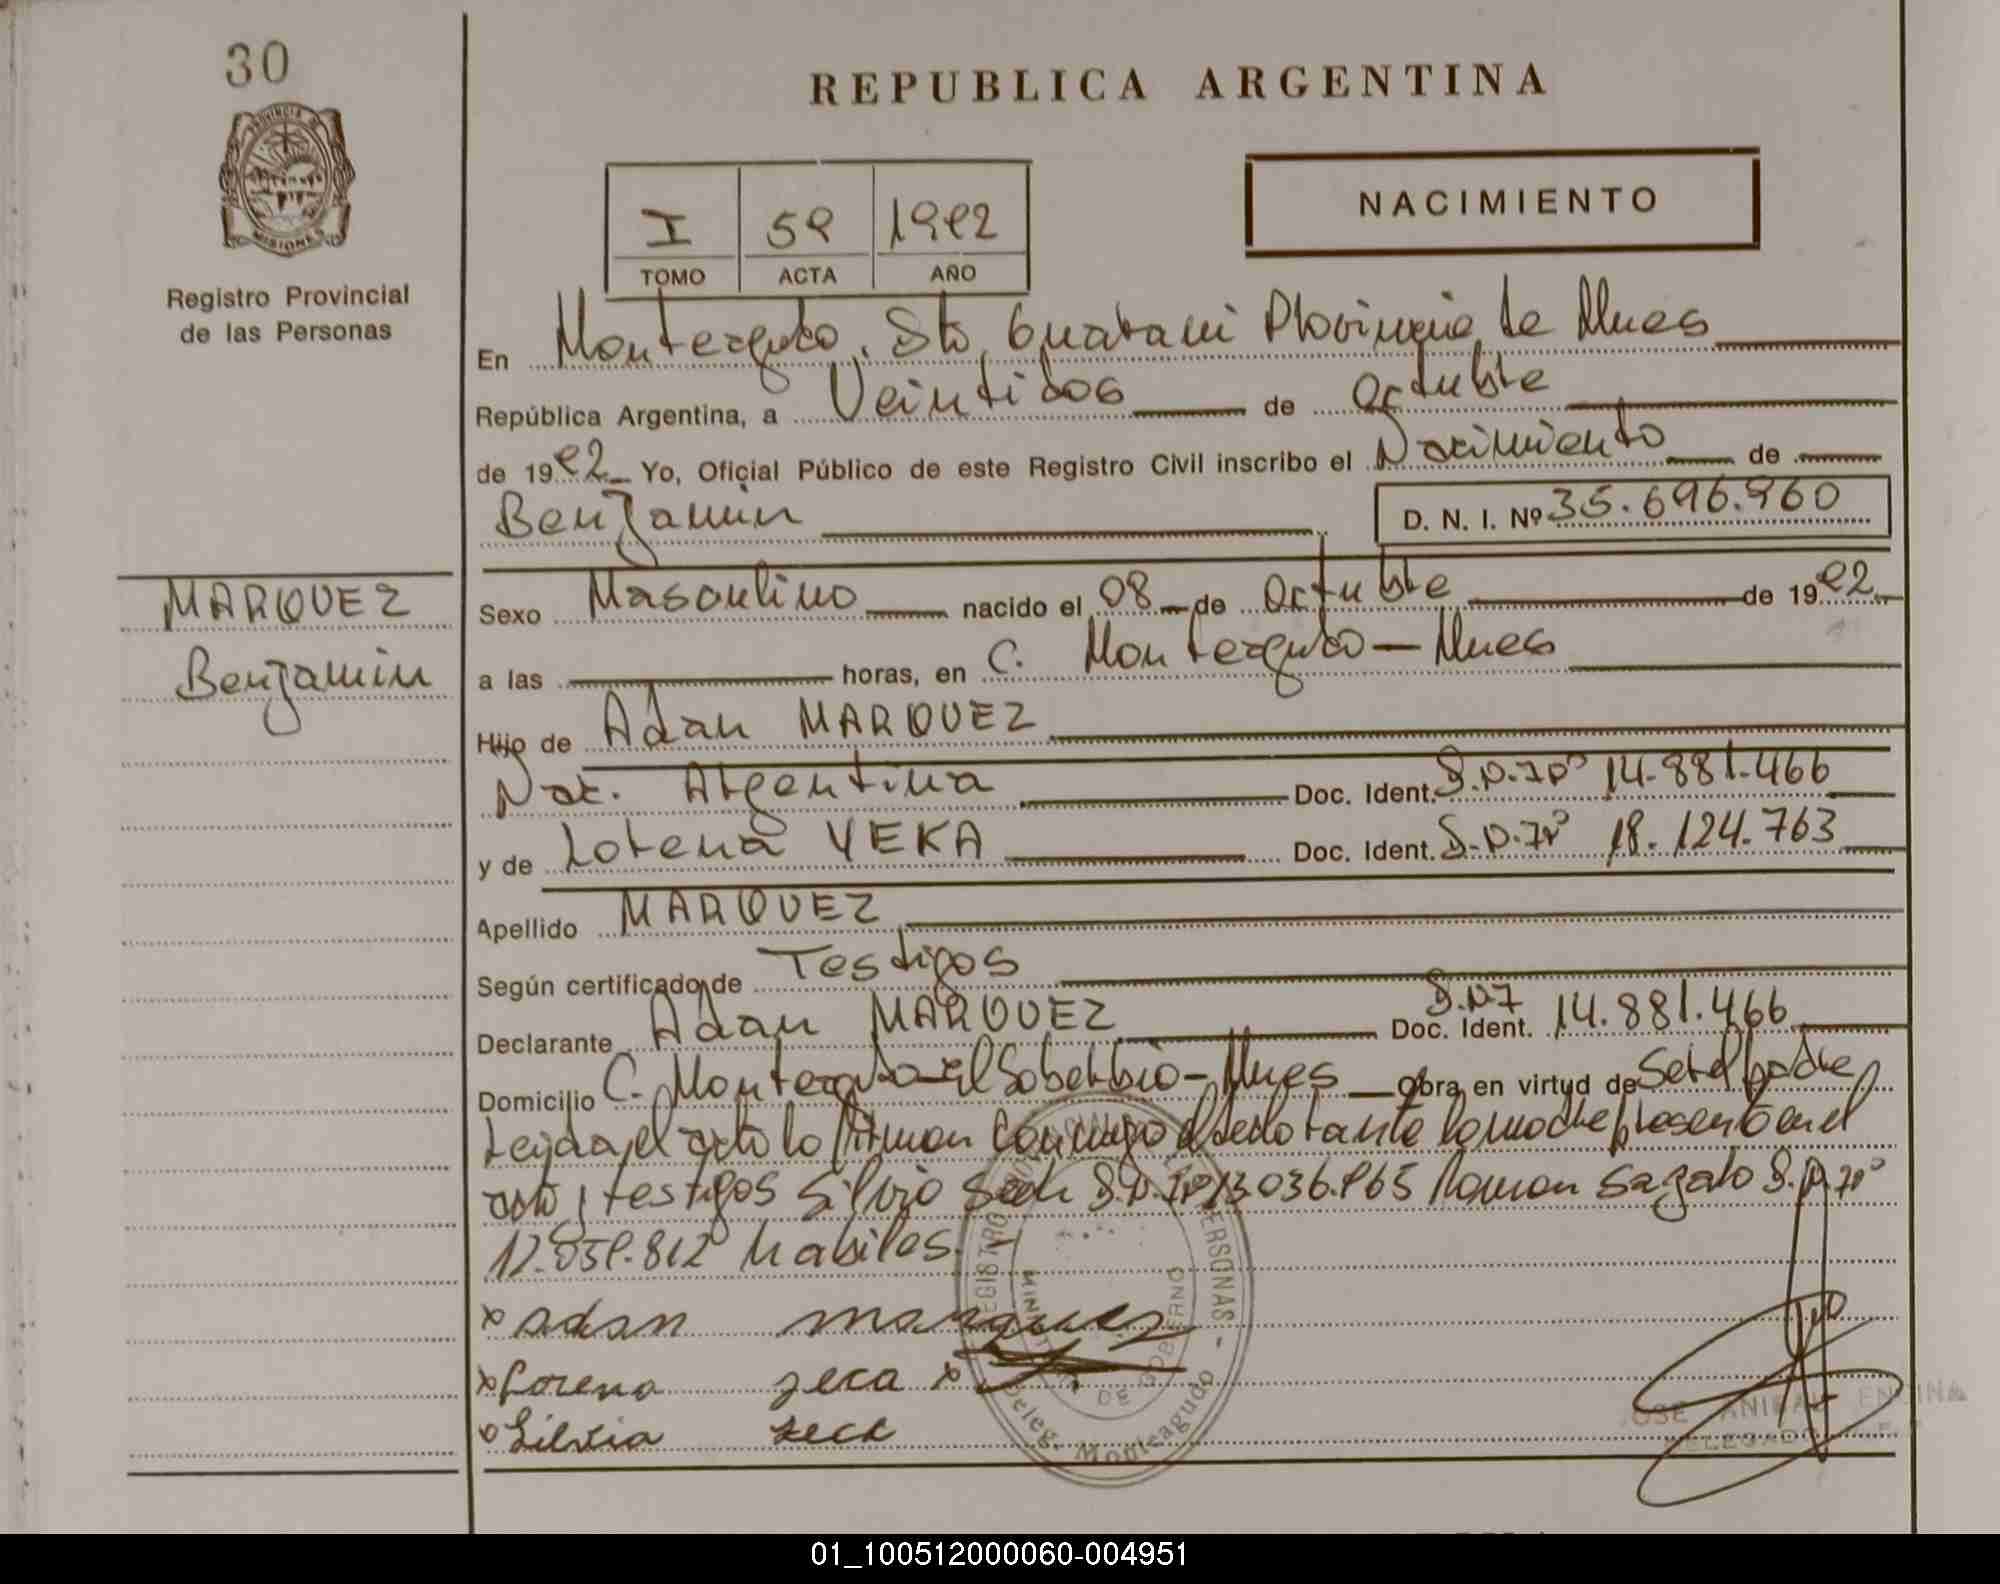 30
REPUBLICA ARGENTINA
PROVINCIA DE
MISIONES
Registro Provincial
de las Personas
I 59 1992
TOMO ACTA AÑO
NACIMIENTO
En Monteagudo, Dto, Guarani Provincia de Mnes
República Argentina, a Veintidos de Octubre
de 1992 Yo, Oficial Público de este Registro Civil inscribo el Nacimiento de
Benjamin D. N. I. Nº 35.696.960
MARQUEZ
Benjamin
Sexo Masculino nacido el 08 de Octubre de 1992
a las horas, en C. Monteagudo - Mnes
Hijo de Adan MARQUEZ
Nac. Argentina Doc. Ident. D.N.I Nº 14.881.466
y de Lorena YEKA Doc. Ident. D.N.I Nº 18.124.763
Apellido MARQUEZ
Según certificado de Testigos
Declarante Adan MARQUEZ Doc. Ident. D.N.I 14.881.466
Domicilio C. Monteagudo-El Soberbio-Mnes obra en virtud de Ser el padre
Leida el acta la firman conmigo el declarante la madre presente en el
acto y testigos Silvio D.N.I Nº Ramon D.N.I Nº
habiles.
x adan marquez
x Lorena zeca x
x Silvio zeck
REGISTRO PERSONAS -
MINISTERIO DE GOBIERNO
Deleg. Monteagudo
JOSE ANIBAL ENCINA
DELEGADO
01_100512000060-004951